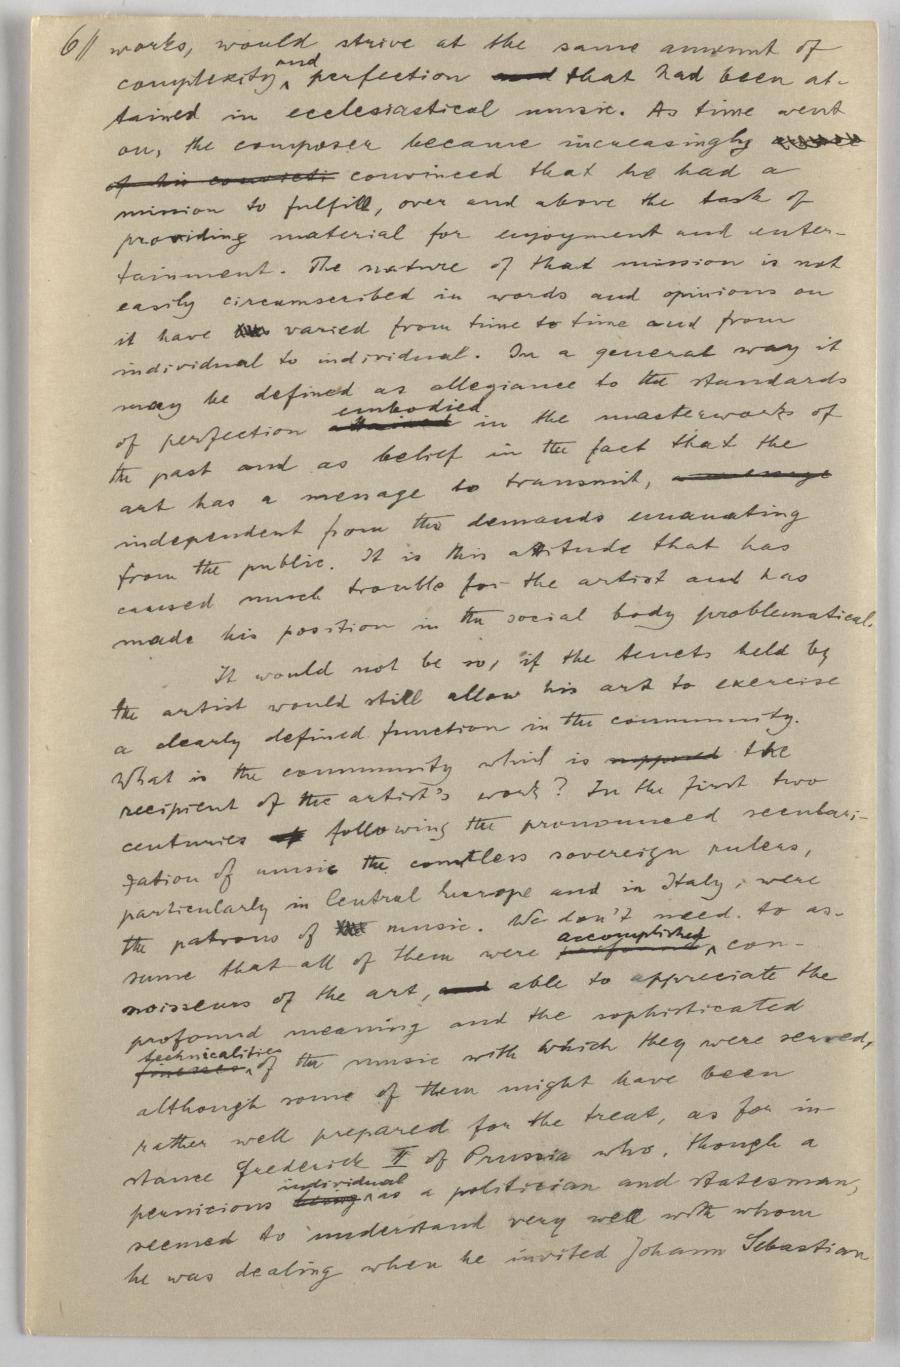 6// works, would strive at the same amount of
complexity and perfection and that had been at-
tained in ecclesiastical music. As time went
on, the composer became increasingly
of his convicti convinced that he had a
mission to fulfill, over and above the task of
providing material for enjoyment and enter-
tainment. The nature of that mission is not
easily circumscribed in words and opinions on
it have varied from time to time and from
individual to individual. In a general way it
may be defined as allegiance to the standards
of perfection attained embodied in the masterworks of
the past and as belief in the fact that the
art has a message to transmit, a message
independent from the demands emanating
from the public. It is this attitude that has
caused much trouble for the artist and has
made his position in the social body problematical.
It would not be so, if the tenets held by
the artist would still allow his art to exercise
a clearly defined function in the community.
What is the community which is supposed the
recipient of the artist's work? In the first two
centuries of following the pronounced seculari-
zation of music the countless sovereign rulers,
particularly in Central Europe and in Italy, were
the patrons of music. We don't need to as-
sume that all of them were accomplished con-
noisseurs of the art, and able to appreciate the
profound meaning and the sophisticated
finesses technicalities of the music with which they were served,
although some of them might have been
rather well prepared for the treat, as for in-
stance Frederick II of Prussia who, though a
pernicious being individual as a politician and statesman,
seemed to understand very well with whom
he was dealing when he invited Johann Sebastian